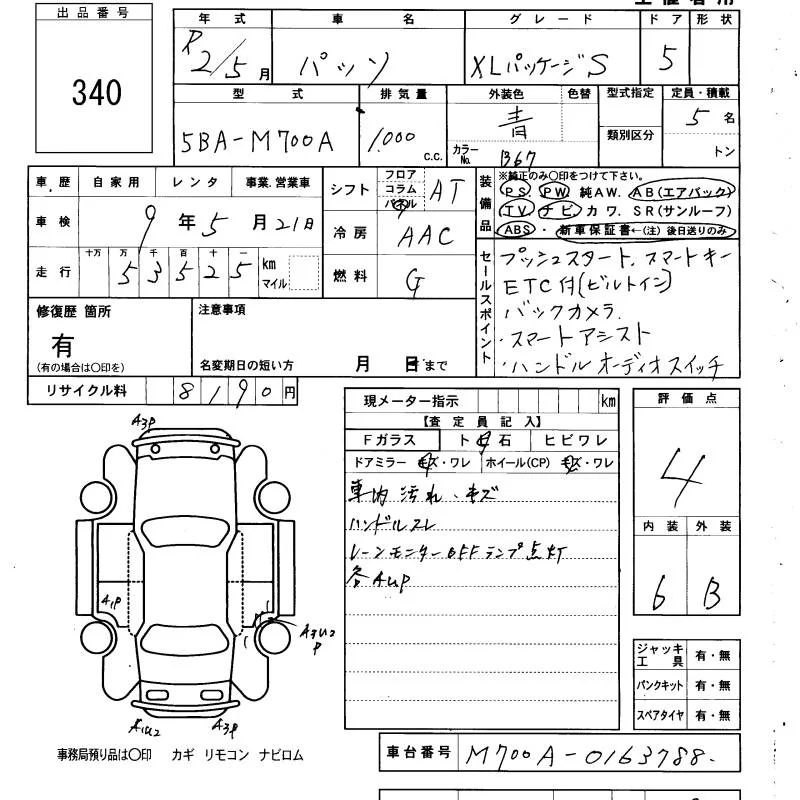 出品番号
340
年式 車名 グレード ドア 形状
R2/5月 パッソ XLパッケージS 5
型式 排気量 外装色 色替 型式指定 定員・積載
5BA-M700A 1,000 c.c. 青 カラーNo. B67 類別区分 5名 トン
車歴 自家用 レンタ 事業.営業車
車検 9年5月21日
走行 十万 万 千 百 十 一
53525 km マイル
シフト フロア コラム パネル AT
冷房 AAC
燃料 G
装備品 ※純正のみ〇印をつけて下さい。
PS PW 純AW. AB(エアバック)
TV ナビ カワ. SR(サンルーフ)
ABS ・ 新車保証書←(注) 後日送りのみ
セールスポイント
プッシュスタート、スマートキー
ETC付(ビルトイン)
バックカメラ
・スマートアシスト
・ハンドルオーディオスイッチ
修復歴 箇所
有
(有の場合は〇印を)
注意事項
名変期日の短い方 月 日まで
リサイクル料 8190円
現メーター指示 km
【査定員記入】
Fガラス ト石 ヒビワレ
ドアミラー キズ・ワレ ホイール(CP) キズ・ワレ
車内汚れ、キズ
ハンドルスレ
レーンモニターOFFランプ点灯
各AUP
評価点
4
内装 外装
6 B
A3P
A1P
A3U2
P
A1U2 A3P
ジャッキ工具 有・無
パンクキット 有・無
スペアタイヤ 有・無
事務局預り品は〇印 カギ リモコン ナビロム
車台番号 M700A-0163788.